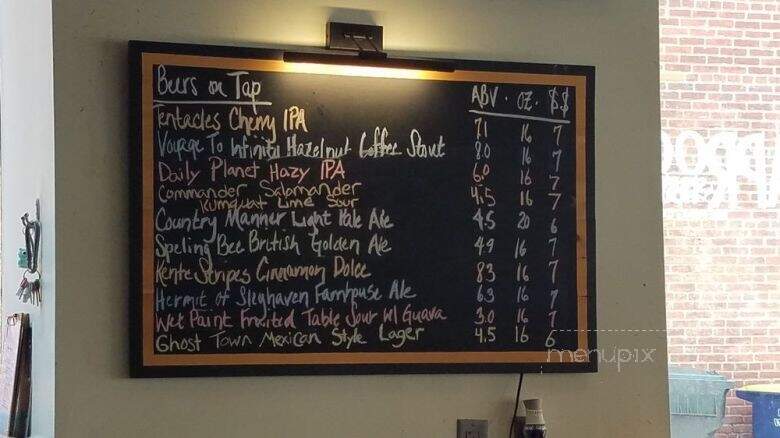 Beers on Tap ABV. OZ. $$
Tentacles Cherry IPA 7.1 16 7
Voyage To Infinity Hazelnut Coffee Stout 8.0 16 7
Daily Planet Hazy IPA 6.0 16 7
Commander Salamander
Kumquat Lime Sour 4.5 16 7
Country Manner Light Pale Ale 4.5 20 6
Speling Bee British Golden Ale 4.9 16 7
Kente Stripes Cinnamon Dolce 8.3 16 7
Hermit of Sleghaven Farmhouse Ale 6.3 16 7
Wet Paint Fruited Table Sour w/ Guava 3.0 16 7
Ghost Town Mexican Style Lager 4.5 16 6
menupix